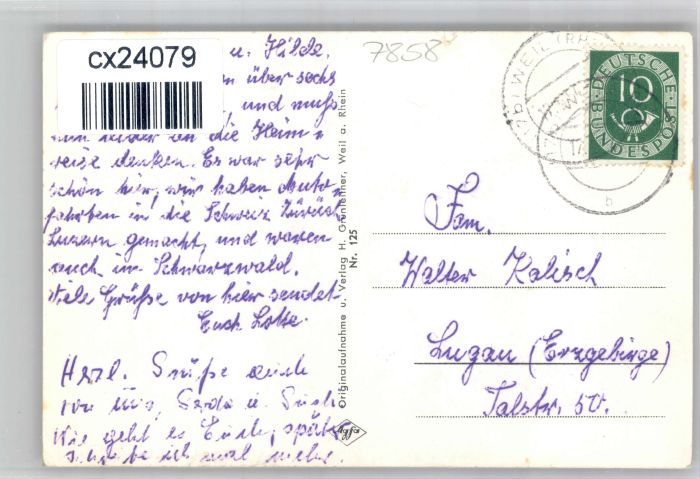 cx24079
7858
u. Hilde.
über sechs
und muß
nun leider an die Heim-
reise denken. Es war sehr
schön hier, wir haben Auto-
fahrten in die Schweiz Zürich
Luzern gemacht, und waren
auch im Schwarzwald.
Viele Grüße von hier sendet
Euch Lotte.
Herzl. Grüße auch
von uns, Gerda u.
Wie geht es Euch, später
schreibe ich mal mehr.
Originalaufnahme u. Verlag H. Grünlehner, Weil a. Rhein
Nr. 125
Agfa
WEIL (RH
17b
b
DEUTSCHE
BUNDESPOST
10
Fam.
Walter Kalisch
Lugau (Erzgebirge)
Talstr. 50.